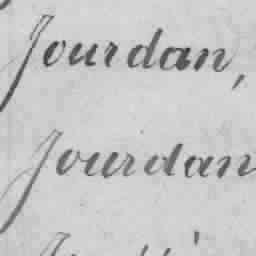 Jourdan,
Jourdan